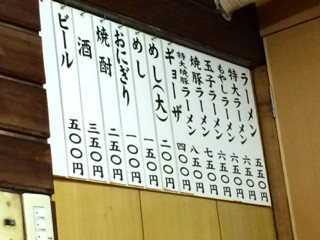 ラーメン 五五〇円
特大ラーメン 六五〇円
もやしラーメン 六五〇円
玉子ラーメン 六五〇円
焼豚ラーメン 七五〇円
特大焼豚ラーメン 八五〇円
ギョーザ 四〇〇円
めし(大) 二〇〇円
めし 一五〇円
おにぎり 一〇〇円
焼酎 二五〇円
酒 三五〇円
ビール 五〇〇円